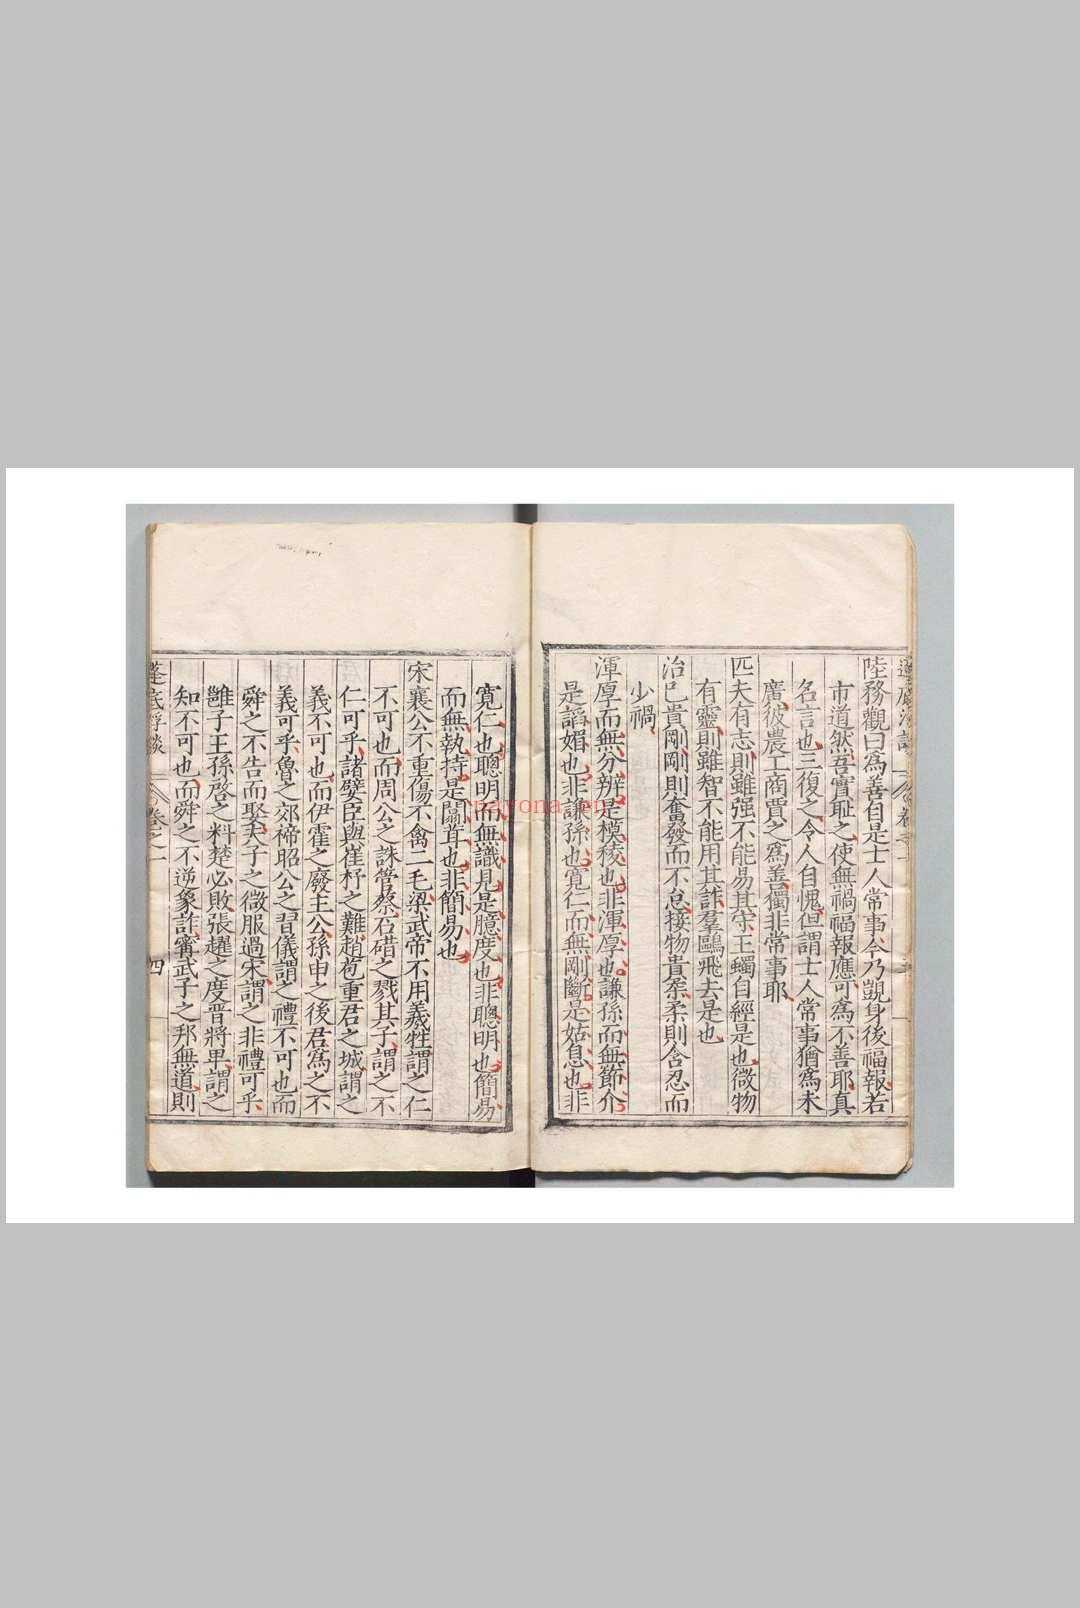 陸務觀曰爲善自是士人常事今乃覬身後福報若
市道然吾實耻之使無禍福報應可爲不善耶真
名言也三復之令人自愧但謂士人常事猶爲未
廣彼農工商賈之爲善獨非常事耶
匹夫有志則雖强不能易其守王蠋自經是也微物
有靈則雖智不能用其詐羣鷗飛去是也
治已貴剛剛則奮發而不怠接物貴柔柔則含忍而
少禍
渾厚而無分辨是模稜也非渾厚也謙孫而無節介
是謟媚也非謙孫也寛仁而無剛斷是姑息也非
寛仁也聰明而無識見是臆度也非聰明也簡易
而無執持是闒茸也非簡易也
宋襄公不重傷不禽二毛梁武帝不用義牲謂之仁
不可也而周公之誅管蔡石碏之戮其子謂之不
仁可乎諸嬖臣與崔杼之難趙苞重君之城謂之
義不可也而伊霍之廢主公孫申之後君爲之不
義可乎魯之郊禘昭公之習儀謂之禮不可也而
舜之不告而娶夫子之微服過宋謂之非禮可乎
雝子王孫啓之料楚必敗張趯之度晋將卑謂之
知不可也而舜之不逆象詐甯武子之邦無道則
蓬底浮談 卷之一 四
nayona.cn